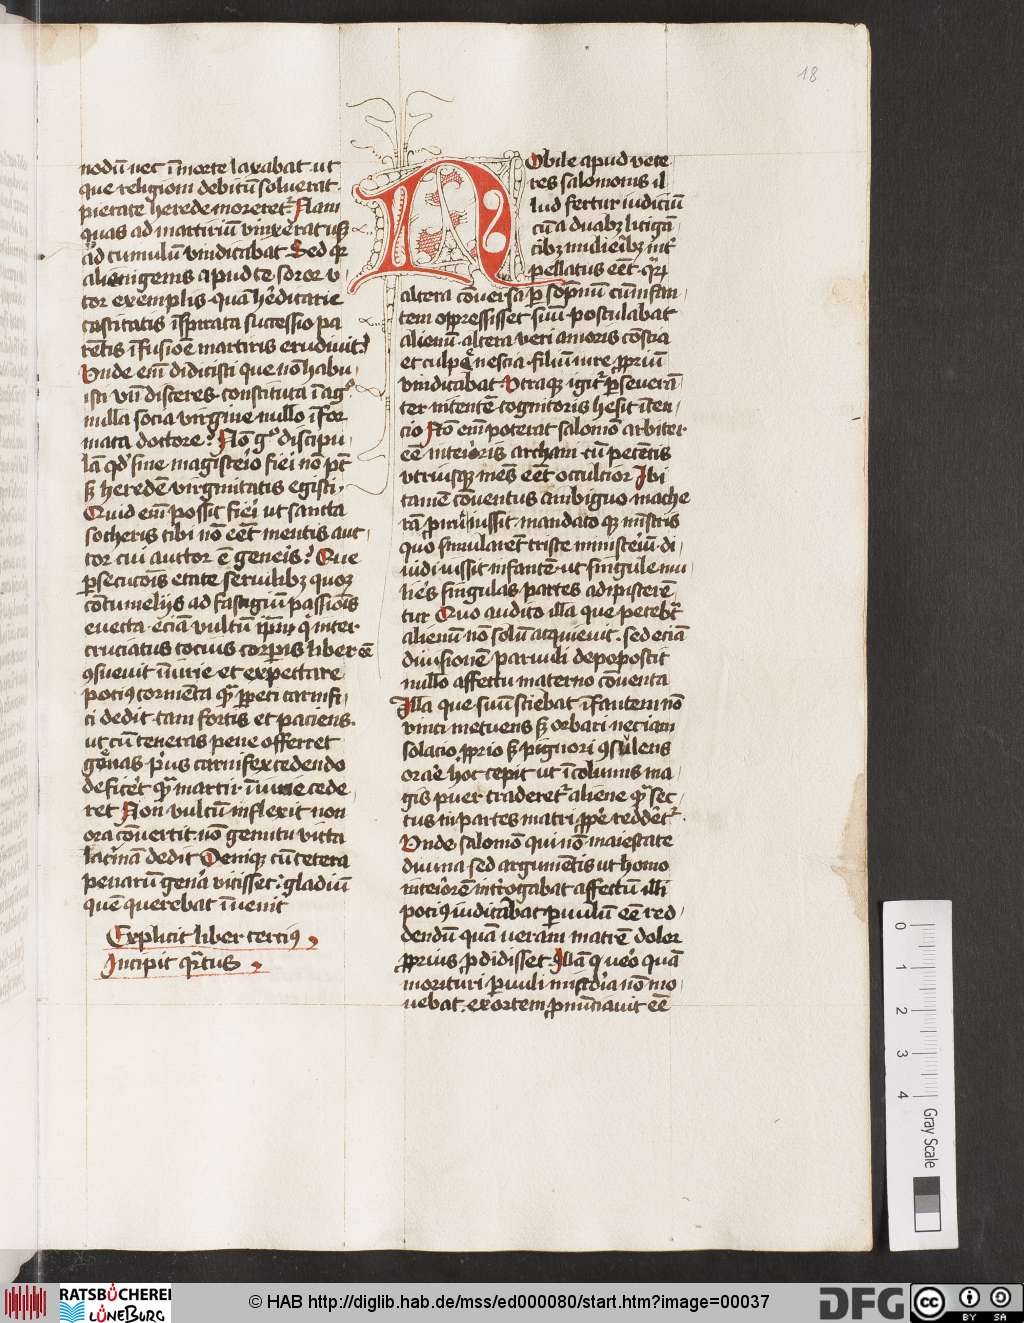 18
nodū nec ī morte laxabat ut
que religioni debitū soluerat
pietate herede moreret᷑ Nam
quas ad martiriū vinxerat usꝫ
ad cumulū vindicabat Sed qͥ
alienigenis apud te soror u-
tor exemplis quā hereditarie
castitatis īspirata successio pa
rētis īfusiōe martiris erudiuit
Unde em̄ didicisti que nō habu-
isti vn̄ disceres constituta ī agͦ
nulla socia virgine nullo īfor
mata doctore Nō gͦ discipu-
lā qd̛ sine magisterio fieri nō pt̄
sꝫ heredē virginitatis egisti
Quid em̄ possit fieri ut sancta
sotheris tibi nō eēt mentis auc-
tor cui auctor ē generis Que
ꝑsecucōis etate seruilibꝫ quoqꝫ
cōtumelijs ad fastigiū passiōis
euecta eciā vultū ip̄m qͥ inter
cruciatus tocius corꝑis liber eē
ꝯsueuit iniurie et expectare
pociꝰ tormēta qͣ ꝑpeti carnifi-
ci dedit tam fortis et paciens
ut cū teneras pene offerret
genas prius carnifex cedendo
deficeret qͣ martir iniurie cede
ret Non vultū inflexit non
ora cōuertit nō gemitu victa
lacrimā dedit Deniqꝫ cū cetera
penarū genera vicisset gladiū
quē querebat īuenit
Explicit liber terciꝰ
Incipit qͣrtus
Nobile apud vete
res salomonis il
lud fertur iudiciū
cū a duabꝫ litigā
cibꝫ mulieribꝫ int̉
pellatus eēt qͣrꝝ
altera cōuersa ꝑ sōpnū cū infan-
tem oppressisset suū postulabat
alienū altera veri amoris cōscia
et culpe nescia filiū iure ꝓpriū
vindicabat Utraqꝫ igit᷑ ꝑseuerā-
ter intentē cognitoris hesit ītē-
cio Nō em̄ poterat salomō arbiter
eē interioris archani cū petētis
utriusqꝫ mēs eēt occulcior Ibi
tamē cōuentus ambiguo mache
rā ꝓmi iussit mandato qꝫ mistris
quo simularēt triste ministeriū di-
uidi iussit infantē ut singule mu-
lieres singulas partes adipiscerē-
tur Quo audito illa que petebat᷑
alienū nō solū acquieuit sed eciā
diuisionē paruuli depoposcit
nullo affectu materno cōuenta
Illa que suū sciebat īfantem nō
vinci metuens sꝫ orbari nec iam
solacio ꝓprio sꝫ pignori ꝯsulens
orare hoc cepit ut īcolumis ma-
gis puer traderet᷑ aliene qͣ sec-
tus in partes matri ꝓprie reddēt᷑
Unde salomō qui nō maiestate
diuina sed argumētis ut homo
interiorē introgabat affectū illi
pociꝰ iudicabat ꝑuulū eē red-
dendū quā veram matrē dolor
ꝓprius ꝓdidisset Illā qͥ uero quā
morituri ꝑuuli mis̄cdia nō mo-
uebat exortem ꝓnūciauit eē
0
1
2
3
4
Gray Scale
RATSBÜCHEREI
LÜNEBURG
© HAB http://diglib.hab.de/mss/ed000080/start.htm?image=00037
DFG
cc
BY SA